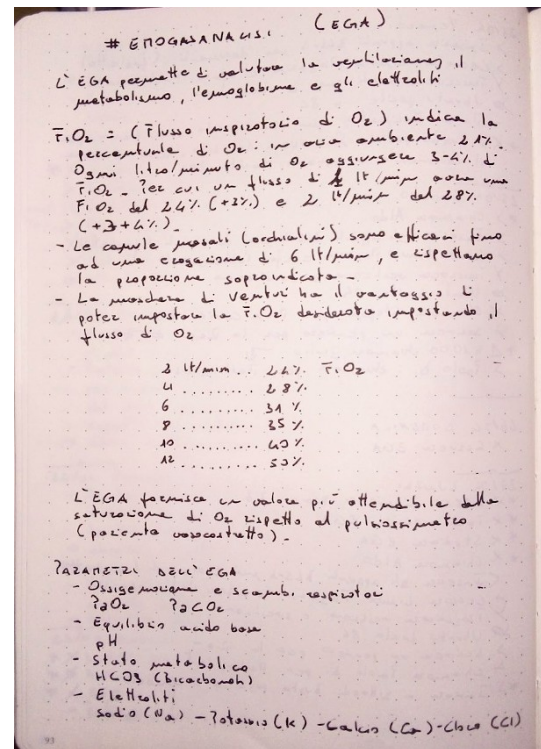 # EMOGASANALISI (EGA)
L'EGA permette di valutare la ventilazione, il
metabolismo, l'emoglobina e gli elettroliti
FiO2 = (Flusso inspiratorio di O2) indica la
percentuale di O2: in aria ambiente 21%.
Ogni litro/minuto di O2 aggiungere 3-4% di
FiO2 - Per cui un flusso di 1 lt/min avrà una
FiO2 del 24% (+3%) e 2 lt/min del 28%
(+3+4%) -
- Le capule nasali (occhialini) sono efficaci fino
ad una erogazione di 6 lt/min, e rispettano
la proporzione sopraindicata -
- La maschera di Venturi ha il vantaggio di
poter impostare la FiO2 desiderata impostando il
flusso di O2
2 lt/min .. 24% FiO2
4 ......... 28%
6 ......... 31%
8 ......... 35%
10 ......... 40%
12 ......... 50%
L'EGA fornisce un valore più attendibile della
saturazione di O2 rispetto al pulsiossimetro
(paziente vasocostretto) -
PARAMETRI DELL'EGA
- Ossigenazione e scambi respiratori
PaO2 PaCO2
- Equilibrio acido base
pH
- Stato metabolico
HCO3 (bicarbonati)
- Elettroliti
Sodio (Na) - Potassio (K) - Calcio (Ca) - Cloro (Cl)
93